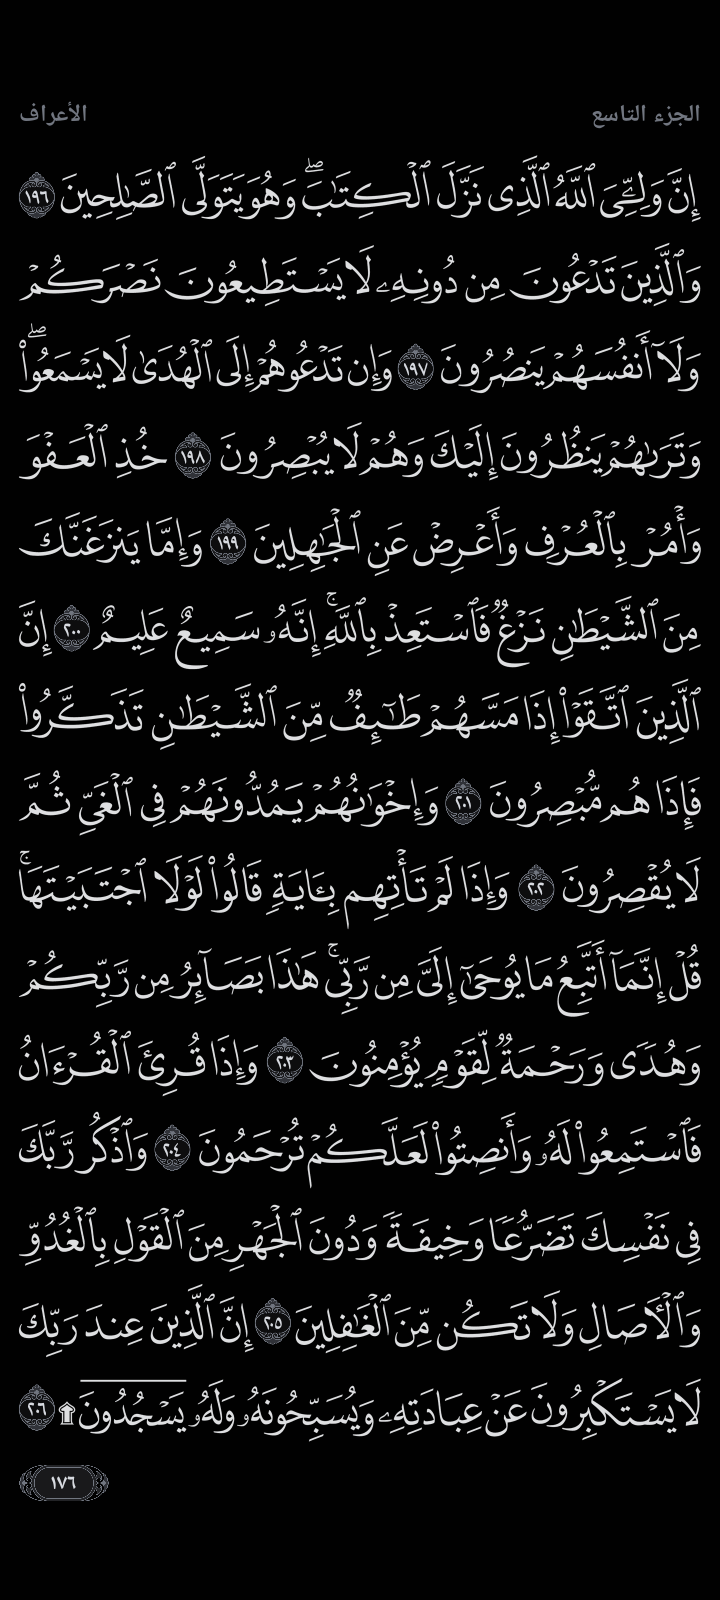 الجزء التاسع
الأعراف
إِنَّ وَلِـِّۧيَ ٱللَّهُ ٱلَّذِى نَزَّلَ ٱلْكِتَـٰبَ ۖ وَهُوَ يَتَوَلَّى ٱلصَّـٰلِحِينَ ١٩٦
وَٱلَّذِينَ تَدْعُونَ مِن دُونِهِۦ لَا يَسْتَطِيعُونَ نَصْرَكُمْ
وَلَآ أَنفُسَهُمْ يَنصُرُونَ ١٩٧ وَإِن تَدْعُوهُمْ إِلَى ٱلْهُدَىٰ لَا يَسْمَعُوا۟ ۖ
وَتَرَىٰهُمْ يَنظُرُونَ إِلَيْكَ وَهُمْ لَا يُبْصِرُونَ ١٩٨ خُذِ ٱلْعَفْوَ
وَأْمُرْ بِٱلْعُرْفِ وَأَعْرِضْ عَنِ ٱلْجَـٰهِلِينَ ١٩٩ وَإِمَّا يَنزَغَنَّكَ
مِنَ ٱلشَّيْطَـٰنِ نَزْغٌ فَٱسْتَعِذْ بِٱللَّهِ ۚ إِنَّهُۥ سَمِيعٌ عَلِيمٌ ٢٠٠ إِنَّ
ٱلَّذِينَ ٱتَّقَوْا۟ إِذَا مَسَّهُمْ طَـٰٓئِفٌ مِّنَ ٱلشَّيْطَـٰنِ تَذَكَّرُوا۟
فَإِذَا هُم مُّبْصِرُونَ ٢٠١ وَإِخْوَٰنُهُمْ يَمُدُّونَهُمْ فِى ٱلْغَىِّ ثُمَّ
لَا يُقْصِرُونَ ٢٠٢ وَإِذَا لَمْ تَأْتِهِم بِـَٔايَةٍ قَالُوا۟ لَوْلَا ٱجْتَبَيْتَهَا ۚ
قُلْ إِنَّمَآ أَتَّبِعُ مَا يُوحَىٰٓ إِلَىَّ مِن رَّبِّى ۚ هَـٰذَا بَصَآئِرُ مِن رَّبِّكُمْ
وَهُدًى وَرَحْمَةٌ لِّقَوْمٍ يُؤْمِنُونَ ٢٠٣ وَإِذَا قُرِئَ ٱلْقُرْءَانُ
فَٱسْتَمِعُوا۟ لَهُۥ وَأَنصِتُوا۟ لَعَلَّكُمْ تُرْحَمُونَ ٢٠٤ وَٱذْكُر رَّبَّكَ
فِى نَفْسِكَ تَضَرُّعًا وَخِيفَةً وَدُونَ ٱلْجَهْرِ مِنَ ٱلْقَوْلِ بِٱلْغُدُوِّ
وَٱلْـَٔاصَالِ وَلَا تَكُن مِّنَ ٱلْغَـٰفِلِينَ ٢٠٥ إِنَّ ٱلَّذِينَ عِندَ رَبِّكَ
لَا يَسْتَكْبِرُونَ عَنْ عِبَادَتِهِۦ وَيُسَبِّحُونَهُۥ وَلَهُۥ يَسْجُدُونَ ۩ ٢٠٦
١٧٦